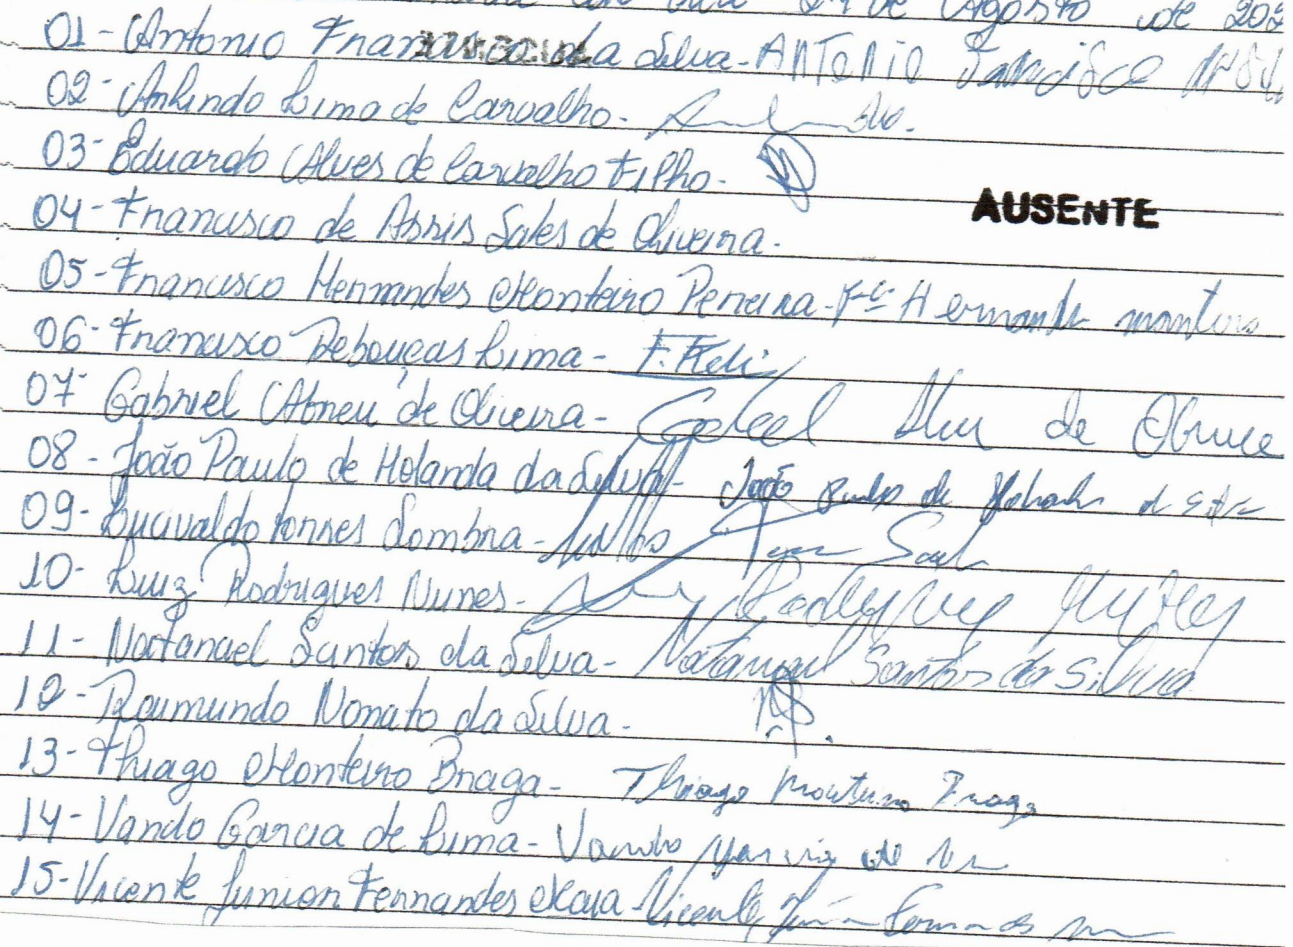 de Agosto de 202
01- Antonio Francisco da Silva - ANTONIO
02- Arlindo Lima de Carvalho.
03- Eduardo Alves de Carvalho Filho.
AUSENTE
04- Francisco de Assis Sales de Oliveira.
05- Francisco Hermandes Monteiro Pereira - Fco Hernands monteiro
06- Francisco Rebouças Lima - F. Feli
07- Gabriel Abreu de Oliveira - Gabriel de
08- João Paulo de Holanda da Silva - João Paulo de Holanda
09- Lucivaldo Torres Sombra -
10- Luiz Rodrigues Nunes - Rodrigues Nunes
11- Natanael Santos da Silva - Natanael Santos da Silva
12- Raimundo Nonato da Silva.
13- Thiago Monteiro Braga - Thiago Monteiro Braga
14- Vando Garcia de Lima - Vando de
15- Vicente Junior Fernandes Maia - Vicente Júnior Fernandes